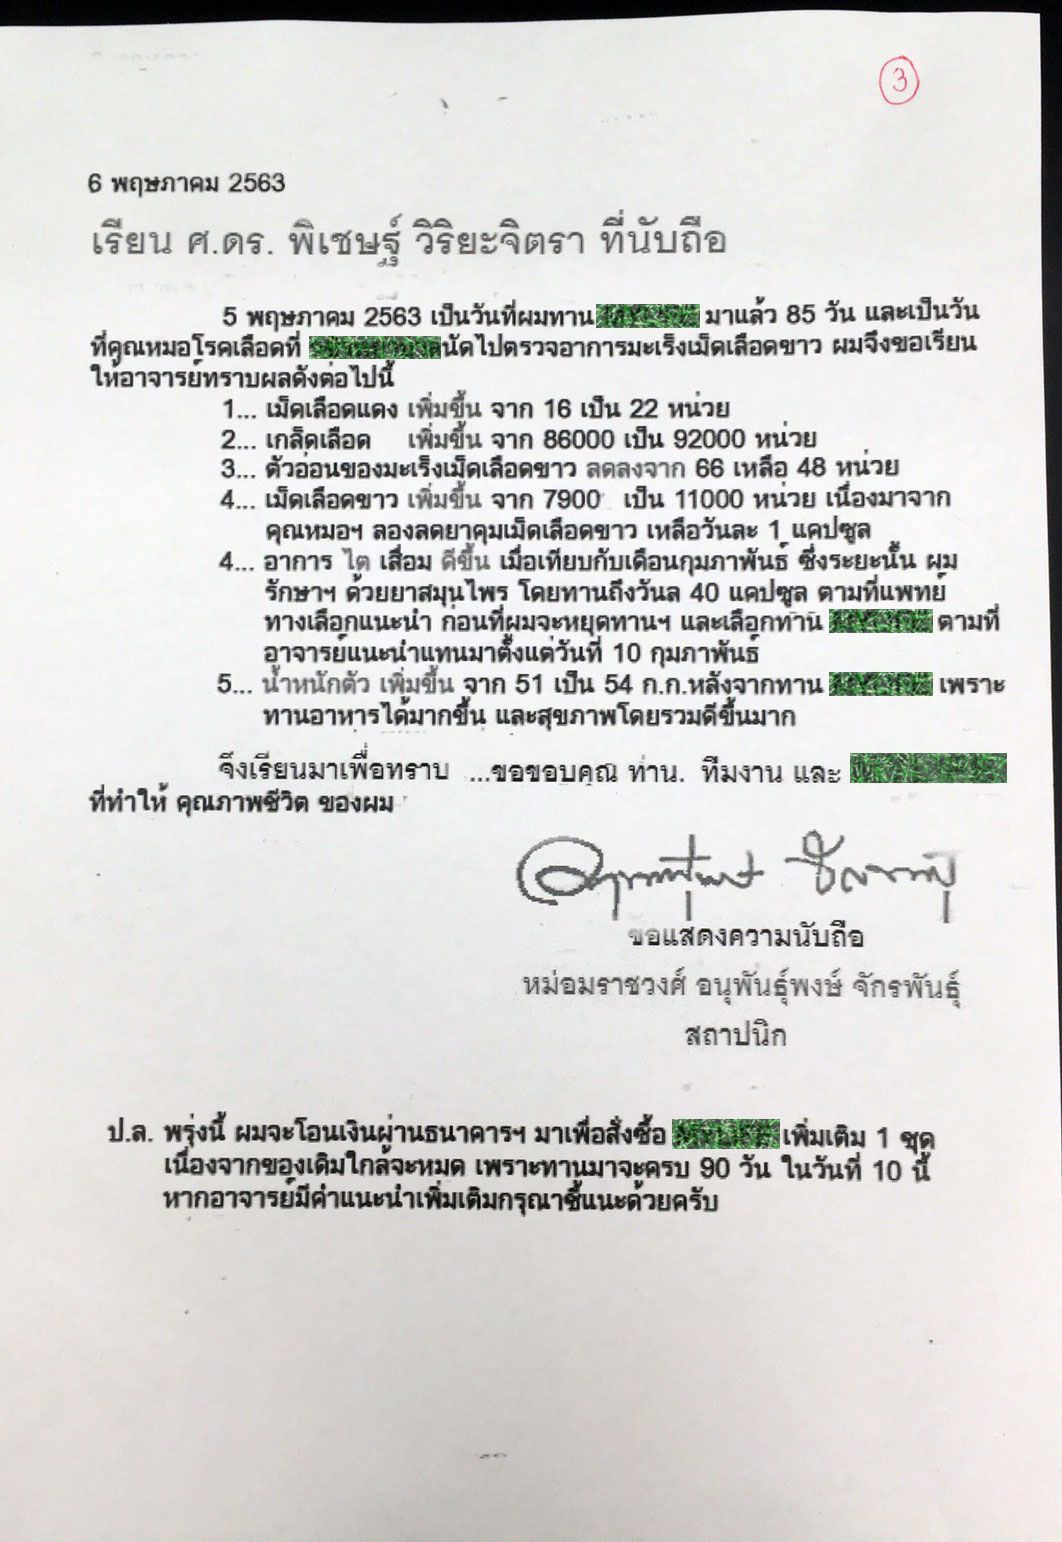 3
6 พฤษภาคม 2563
เรียน ศ.ดร. พิเชษฐ์ วิริยะจิตรา ที่นับถือ
5 พฤษภาคม 2563 เป็นวันที่ผมทาน มาแล้ว 85 วัน และเป็นวัน
ที่คุณหมอโรคเลือดที่ นัดไปตรวจอาการมะเร็งเม็ดเลือดขาว ผมจึงขอเรียน
ให้อาจารย์ทราบผลดังต่อไปนี้
1... เม็ดเลือดแดง เพิ่มขึ้น จาก 16 เป็น 22 หน่วย
2... เกล็ดเลือด เพิ่มขึ้น จาก 86000 เป็น 92000 หน่วย
3... ตัวอ่อนของมะเร็งเม็ดเลือดขาว ลดลงจาก 66 เหลือ 48 หน่วย
4... เม็ดเลือดขาว เพิ่มขึ้น จาก 7900 เป็น 11000 หน่วย เนื่องมาจาก
คุณหมอฯ ลองลดยาคุมเม็ดเลือดขาว เหลือวันละ 1 แคปซูล
4... อาการ ไต เสื่อม ดีขึ้น เมื่อเทียบกับเดือนกุมภาพันธ์ ซึ่งระยะนั้น ผม
รักษาฯ ด้วยยาสมุนไพร โดยทานถึงวันล 40 แคปซูล ตามที่แพทย์
ทางเลือกแนะนำ ก่อนที่ผมจะหยุดทานฯ และเลือกทาน ตามที่
อาจารย์แนะนำแทนมาตั้งแต่วันที่ 10 กุมภาพันธ์
5... น้ำหนักตัว เพิ่มขึ้น จาก 51 เป็น 54 ก.ก.หลังจากทาน เพราะ
ทานอาหารได้มากขึ้น และสุขภาพโดยรวมดีขึ้นมาก
จึงเรียนมาเพื่อทราบ ...ขอขอบคุณ ท่าน. ทีมงาน และ
ที่ทำให้ คุณภาพชีวิต ของผม
ขอแสดงความนับถือ
หม่อมราชวงศ์ อนุพันธุ์พงษ์ จักรพันธุ์
สถาปนิก
ป.ล. พรุ่งนี้ ผมจะโอนเงินผ่านธนาคารฯ มาเพื่อสั่งซื้อ เพิ่มเติม 1 ชุด
เนื่องจากของเดิมใกล้จะหมด เพราะทานมาจะครบ 90 วัน ในวันที่ 10 นี้
หากอาจารย์มีคำแนะนำเพิ่มเติมกรุณาชี้แนะด้วยครับ